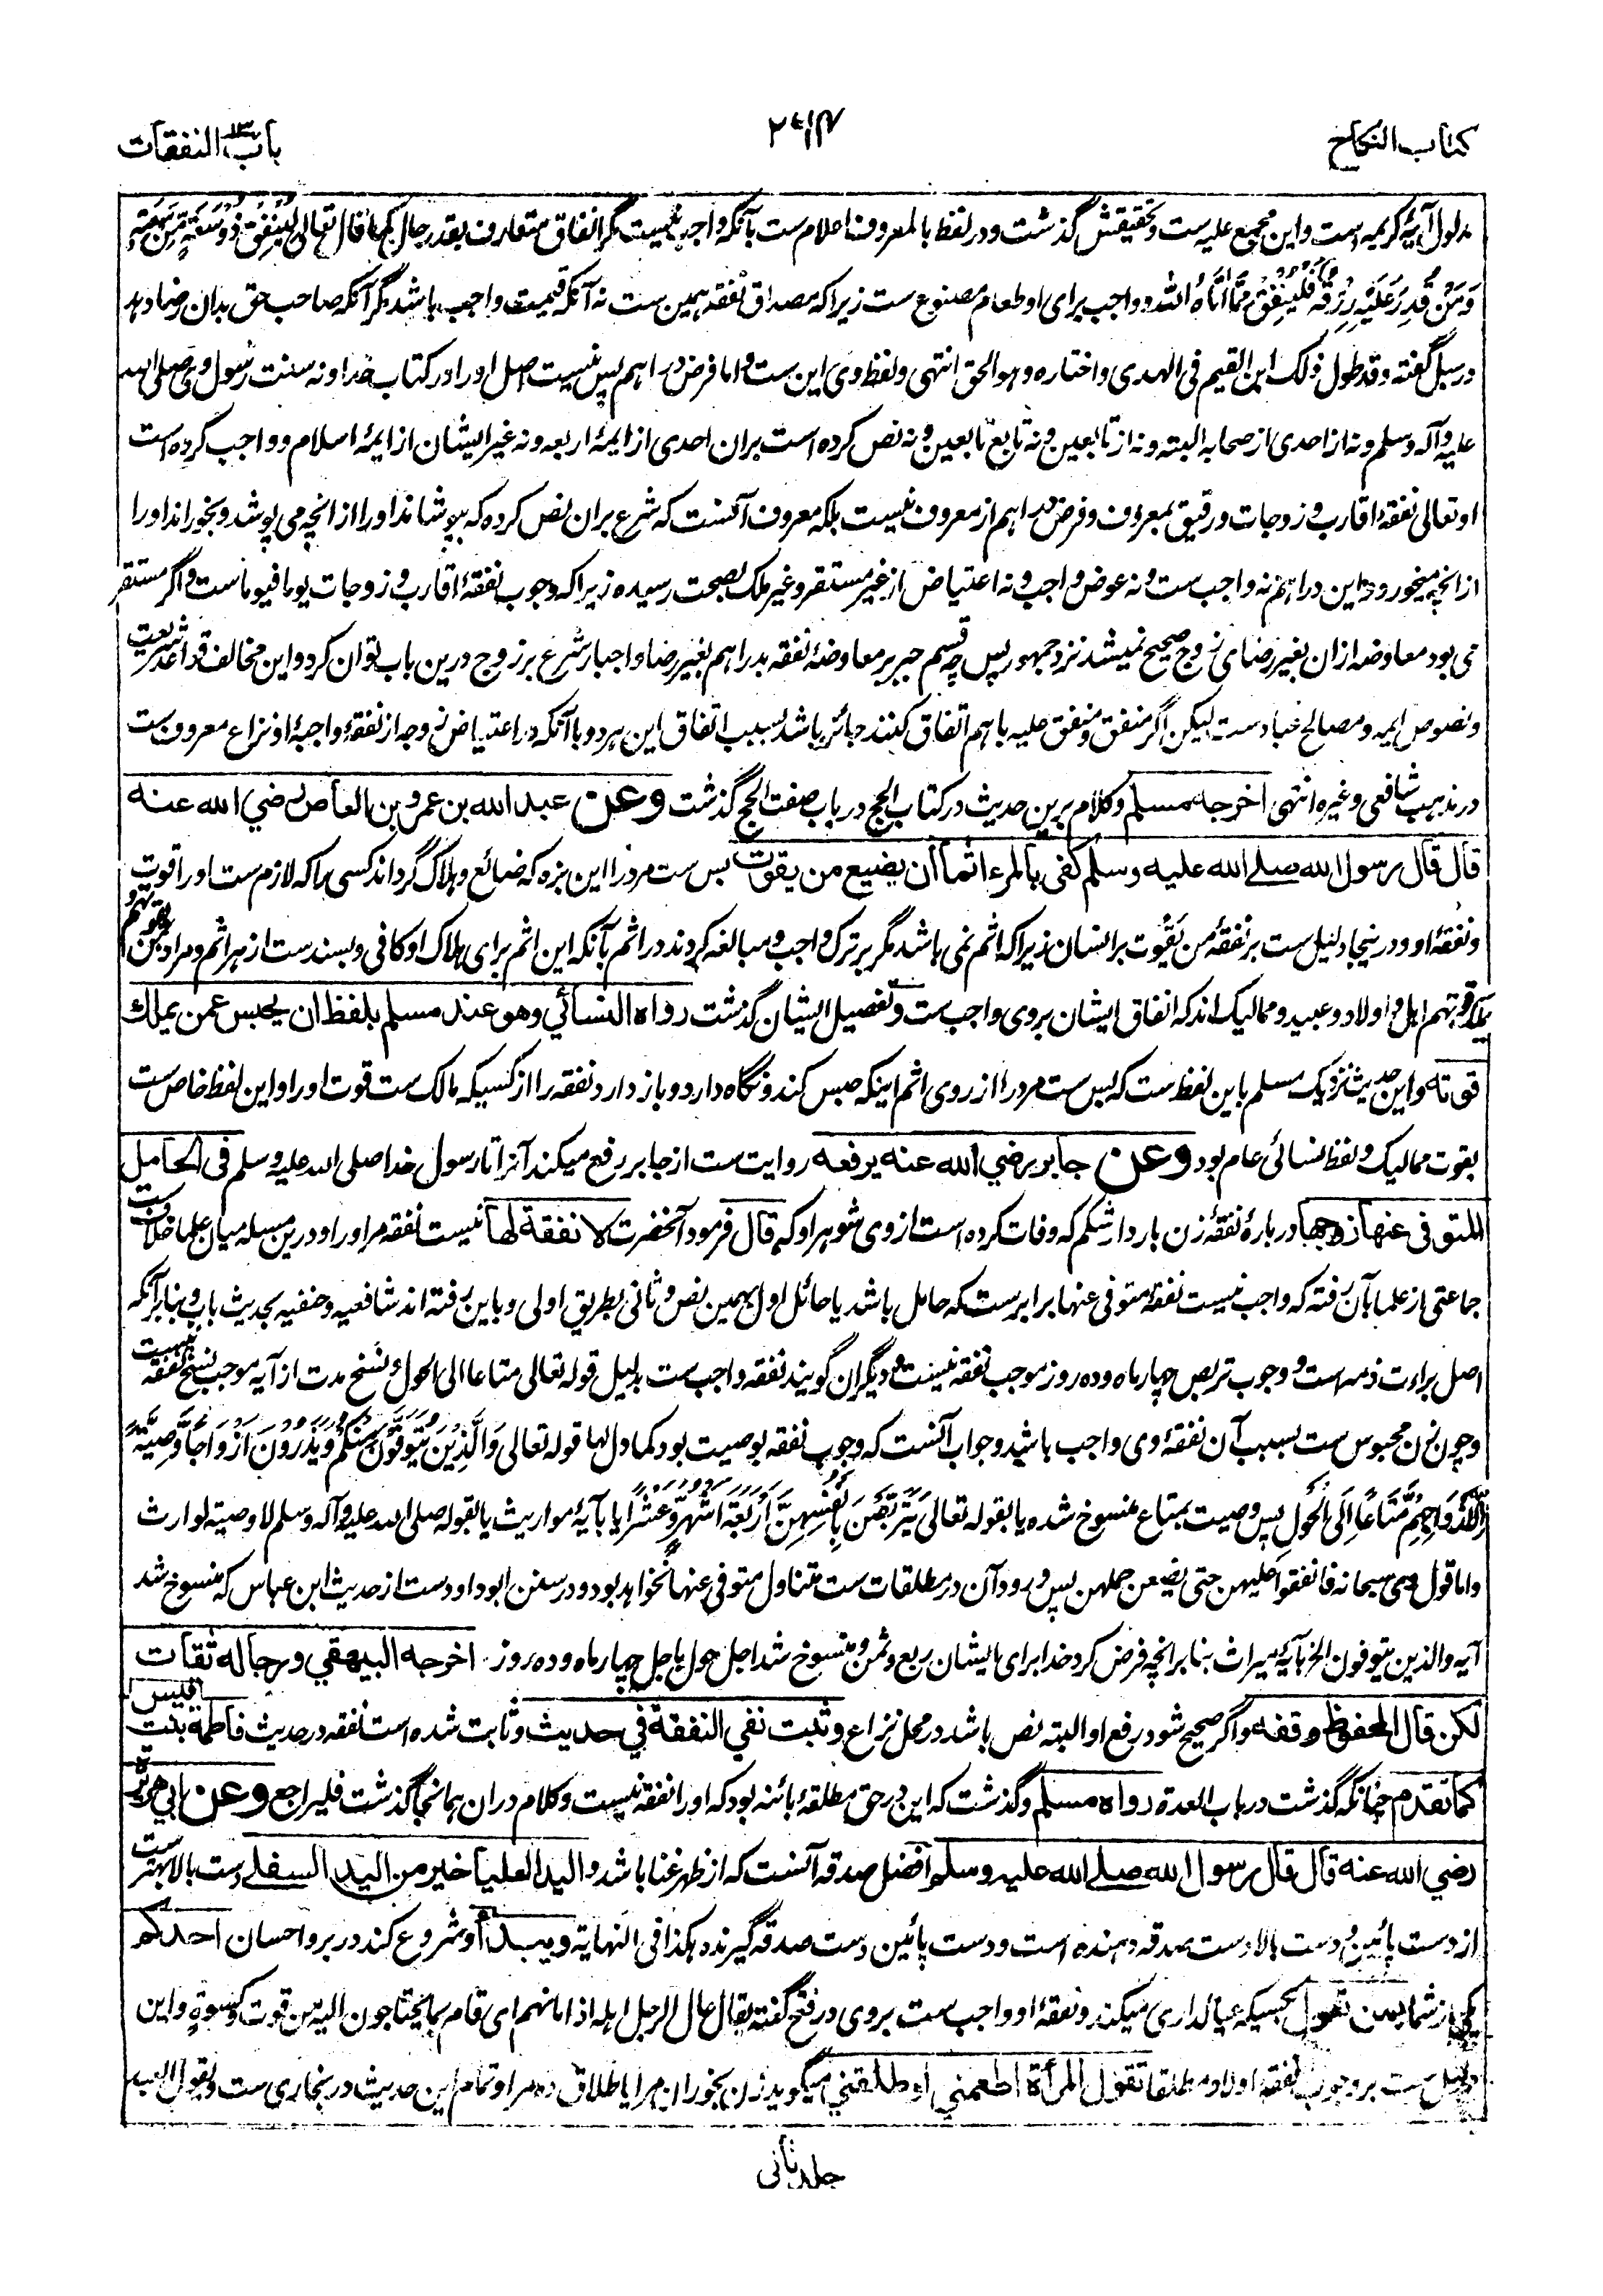 کتاب النکاح
باب النفقات
مدلول آیهٔ کریمه است و این مجمع علیه ست و تحقیقش گذشت و در لفظ بالمعروف اعلام ست بآنکه واجب نیست مگر انفاق متعارف بقدر حال کما قال تعالی لِیُنْفِقْ ذُوْ سَعَةٍ مِّنْ سَعَتِهٖ
وَمَنْ قُدِرَ عَلَیْهِ رِزْقُهٗ فَلْیُنْفِقْ مِمَّا اٰتَاهُ اللهُ و واجب برای او طعام مصنوع ست زیرا که مصداق نفقه همین ست نه آنکه قیمت واجب باشد مگر آنکه صاحب حق بدان رضا دهد
در سبل گفته و قد طول ذلک ابن القیم فی الهدی و اختاره و هو الحق انتهی و لفظ وی این ست و اما فرض دراهم پس نیست اصل او را در کتاب خدا و نه سنت رسول وی صلی الله
علیه و آله و سلم و نه از احدی از صحابه البته و نه از تابعین و نه تابع تابعین و نه نص کرده است بران احدی از ایمهٔ اربعه و نه غیر ایشان از ایمهٔ اسلام و واجب کرده است
او تعالی نفقهٔ اقارب و زوجات و رقیق بمعروف و فرض دراهم از معروف نیست بلکه معروف آنست که شرع بران نص کرده که بپوشاند او را از انچه می پوشد و بخوراند او را
از انچه میخورد و این دراهم نه واجب ست و نه عوض واجب و نه اعتیاض از غیر مستقر و غیر ملک بصحت رسیده زیرا که وجوب نفقهٔ اقارب و زوجات یوما فیوما ست و اگر مستقر
می بود معاوضه ازان بغیر رضای زوج صحیح نمیشد نزد جمهور پس چه قسم جبر بر معاوضهٔ نفقه بدراهم بغیر رضا و اجبار شرع بر زوج درین باب توان کرد و این مخالف قواعد شریعت
و نصوص ایمه و مصالح عباد ست لیکن اگر منفق و منفق علیه باهم اتفاق کنند جائز باشد بسبب اتفاق این هر دو با آنکه در اعتیاض زوجه از نفقهٔ واجبهٔ او نزاع معروف ست
در مذهب شافعی و غیره انتهی اخرجه مسلم و کلام برین حدیث در کتاب الحج در باب صفت الحج گذشت وعن عبد الله بن عمرو بن العاص رضي الله عنه
قال قال رسول الله صلے الله علیه وسلم کفی بالمرء اثما أن یضیع من یقوت بس ست مرد را این بزه که ضائع و هلاک گرداند کسی را که لازم ست او را قوت
و نفقهٔ او و درینجا دلیل ست بر نفقهٔ من یقوت بر انسان زیرا که اثم نمی باشد مگر بر ترک واجب و مبالغه کردند در اثم بآنکه این اثم برای هلاک او کافی و بسند ست از هر اثم و مراد بمن
اهل و اولاد و عبید و ممالیک اند که انفاق ایشان بروی واجب ست و تفصیل ایشان گذشت رواه النسائي وهو عند مسلم بلفظ ان یحبس عمن یملك
قوته و این حدیث نزدیک مسلم باین لفظ ست که بس ست مرد را از روی اثم اینکه حبس کند و نگاه دارد و باز دارد نفقه را از کسیکه مالک ست قوت او را و این لفظ خاص ست
بقوت ممالیک و لفظ نسائی عام بود وعن جابر رضي الله عنه یرفعه روایت ست از جابر رفع میکند آنرا تا رسول خدا صلی الله علیه وسلم فی الحامل
المتوفی عنها زوجها دربارهٔ نفقهٔ زن باردار شکم که وفات کرده است از وی شوهر او که قال فرمود آنحضرت لا نفقة لها نیست نفقه مر او را و درین مسله میان علما خلاف ست
جماعتی از علما بآن رفته که واجب نیست نفقهٔ متوفی عنها برابر ست که حامل باشد یا حائل اول بهمین نص و ثانی بطریق اولی و باین رفته اند شافعیه و حنفیه بحدیث باب و بنا بر آنکه
اصل براءت ذمه است و وجوب تربص چهار ماه و ده روز موجب نفقه نیست و دیگران گویند نفقه واجب ست بدلیل قوله تعالی متاعا الی الحول و نسخ مدت از آیه موجب نسخ نفقه نیست
و چون زن محبوس ست بسبب آن نفقهٔ وی واجب باشد و جواب آنست که وجوب نفقه بوصیت بود کما دل لها قوله تعالی وَالَّذِیْنَ یُتَوَفَّوْنَ مِنْکُمْ وَیَذَرُوْنَ اَزْوَاجًا وَّصِیَّةً
لِّاَزْوَاجِهِمْ مَّتَاعًا اِلَی الْحَوْلِ پس وصیت بمتاع منسوخ شده یا بقوله تعالی یَتَرَبَّصْنَ بِاَنْفُسِهِنَّ اَرْبَعَةَ اَشْهُرٍ وَّعَشْرًا یا بآیهٔ مواریث یا بقوله صلی الله علیه و آله وسلم لا وصیة لوارث
و اما قول وی سبحانه فانفقوا علیهن حتی یضعن حملهن پس ورود آن در مطلقات ست متناول متوفی عنها نخواهد بود و در سنن ابوداود ست از حدیث ابن عباس که منسوخ شد
آیه والذین یتوفون الخ بآیهٔ میراث بنا بر انچه فرض کرد خدا برای ایشان ربع و ثمن و منسوخ شد اجل حول باجل چهار ماه و ده روز۔ اخرجه البیهقي ورجاله ثقات
لکن قال المحفوظ وقفه و اگر صحیح شود رفع او البته نص باشد در محل نزاع و ثبت نفي النفقة في حدیث و ثابت شده است نفقه در حدیث فاطمة بنت قیس
کما تقدم چنانکه گذشت در باب العدة رواه مسلم و گذشت که این در حق مطلقهٔ بائنه بود که او را نفقه نیست و کلام دران همانجا گذشت فلیراجع وعن ابي هریرة
رضي الله عنه قال قال رسول الله صلے الله علیه وسلم افضل صدقه آنست که از ظهر غنا باشد و الید العلیا خیر من الید السفلے دست بالا بهتر ست
از دست پائین و دست بالا دست صدقه دهنده است و دست پائین دست صدقه گیرنده هکذا فی النهایة ویبدأ و شروع کند در بر و احسان احدکم
یکی از شما بمن تعول بکسیکه عیالداری میکند و نفقهٔ او واجب ست بروی در فتح گفته یقال عال الرجل اهله اذا مانهم ای قام بما یحتاجون الیه من قوت و کسوة و این
دلیل ست بر وجوب نفقهٔ اولاد مطلقا تقول المرأة اطعمني او طلقني میگوید زن بخوران مرا یا طلاق ده مرا و تمام این حدیث در بخاری ست و یقول العبد
جلد ثانی